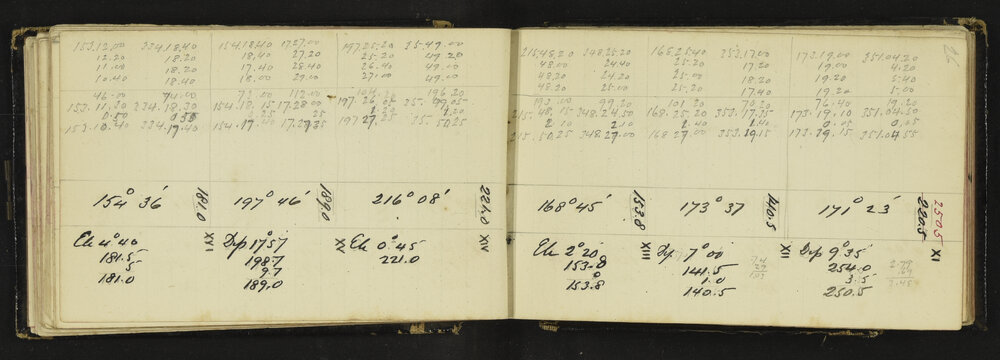 153.12.00 334.18.40 154.18.40 17.27.00 197.25.20 35.49.00
12.20 18.20 18.40 27.20 25.20 49.20
11.00 18.20 17.40 28.40 26.40 49.00
10.40 18.40 18.00 29.00 27.00 49.00
46.00 74.00 72.00 112.00 104.20 196.20
153.11.30 334.18.30 154.18.15 17.28.00 197.26.05 35.49.05
0.50 0.50 25 25 1.20 1.20
153.10.40 334.19.40 154.17.40 17.27.35 197.27.25 35.50.25
154° 36' 181.0 197° 46' 189.0 216° 08' 221.0
El 4° 40 XVI Dep 17° 57 XV El 0° 45 XIV
181.5 198.7 221.0
.5 9.7
181.0 189.0
26
215.48.20 348.25.20 168.25.40 353.17.00 173.19.00 351.04.20
48.00 24.40 25.20 17.20 19.00 4.20
48.20 24.20 25.00 18.20 19.20 5.40
48.20 25.00 25.20 17.40 19.20 5.00
193.00 99.20 101.20 70.20 76.40 19.20
215.48.15 348.24.50 168.25.20 353.17.35 173.19.10 351.04.50
2.10 2.10 1.40 1.40 0.05 0.05
215.50.25 348.27.00 168.27.00 353.19.15 173.19.15 351.04.55
168° 45' 153.8 173° 37 140.5 171° 23' 220.5 250.5
El 2° 20 XIII Dep 7° 00 XII Dep 9° 35' XI
153.8 141.5 254.0
0 1.0 3.5
153.8 140.5 250.5